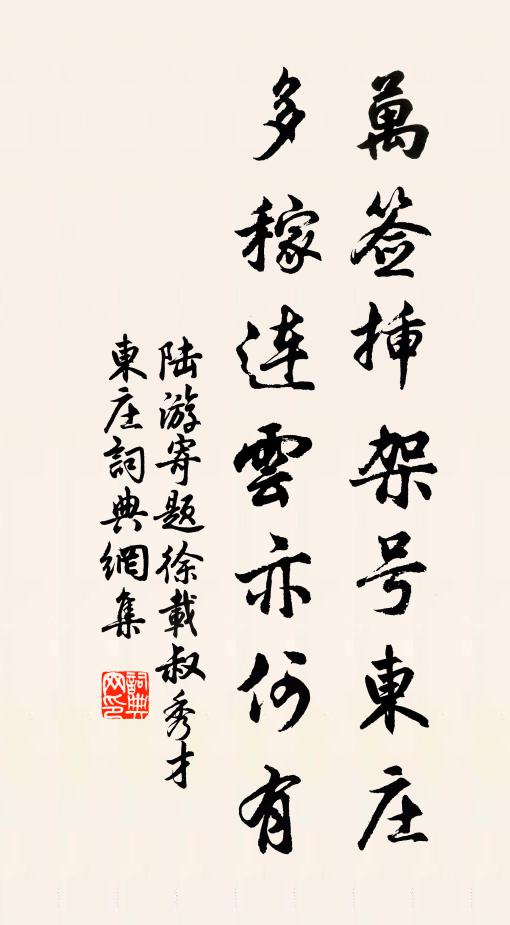 萬签挿架号東庄
多稼連雲亦何有
陆游寄题徐載叔秀才
東庄詞典網集
詞典网印